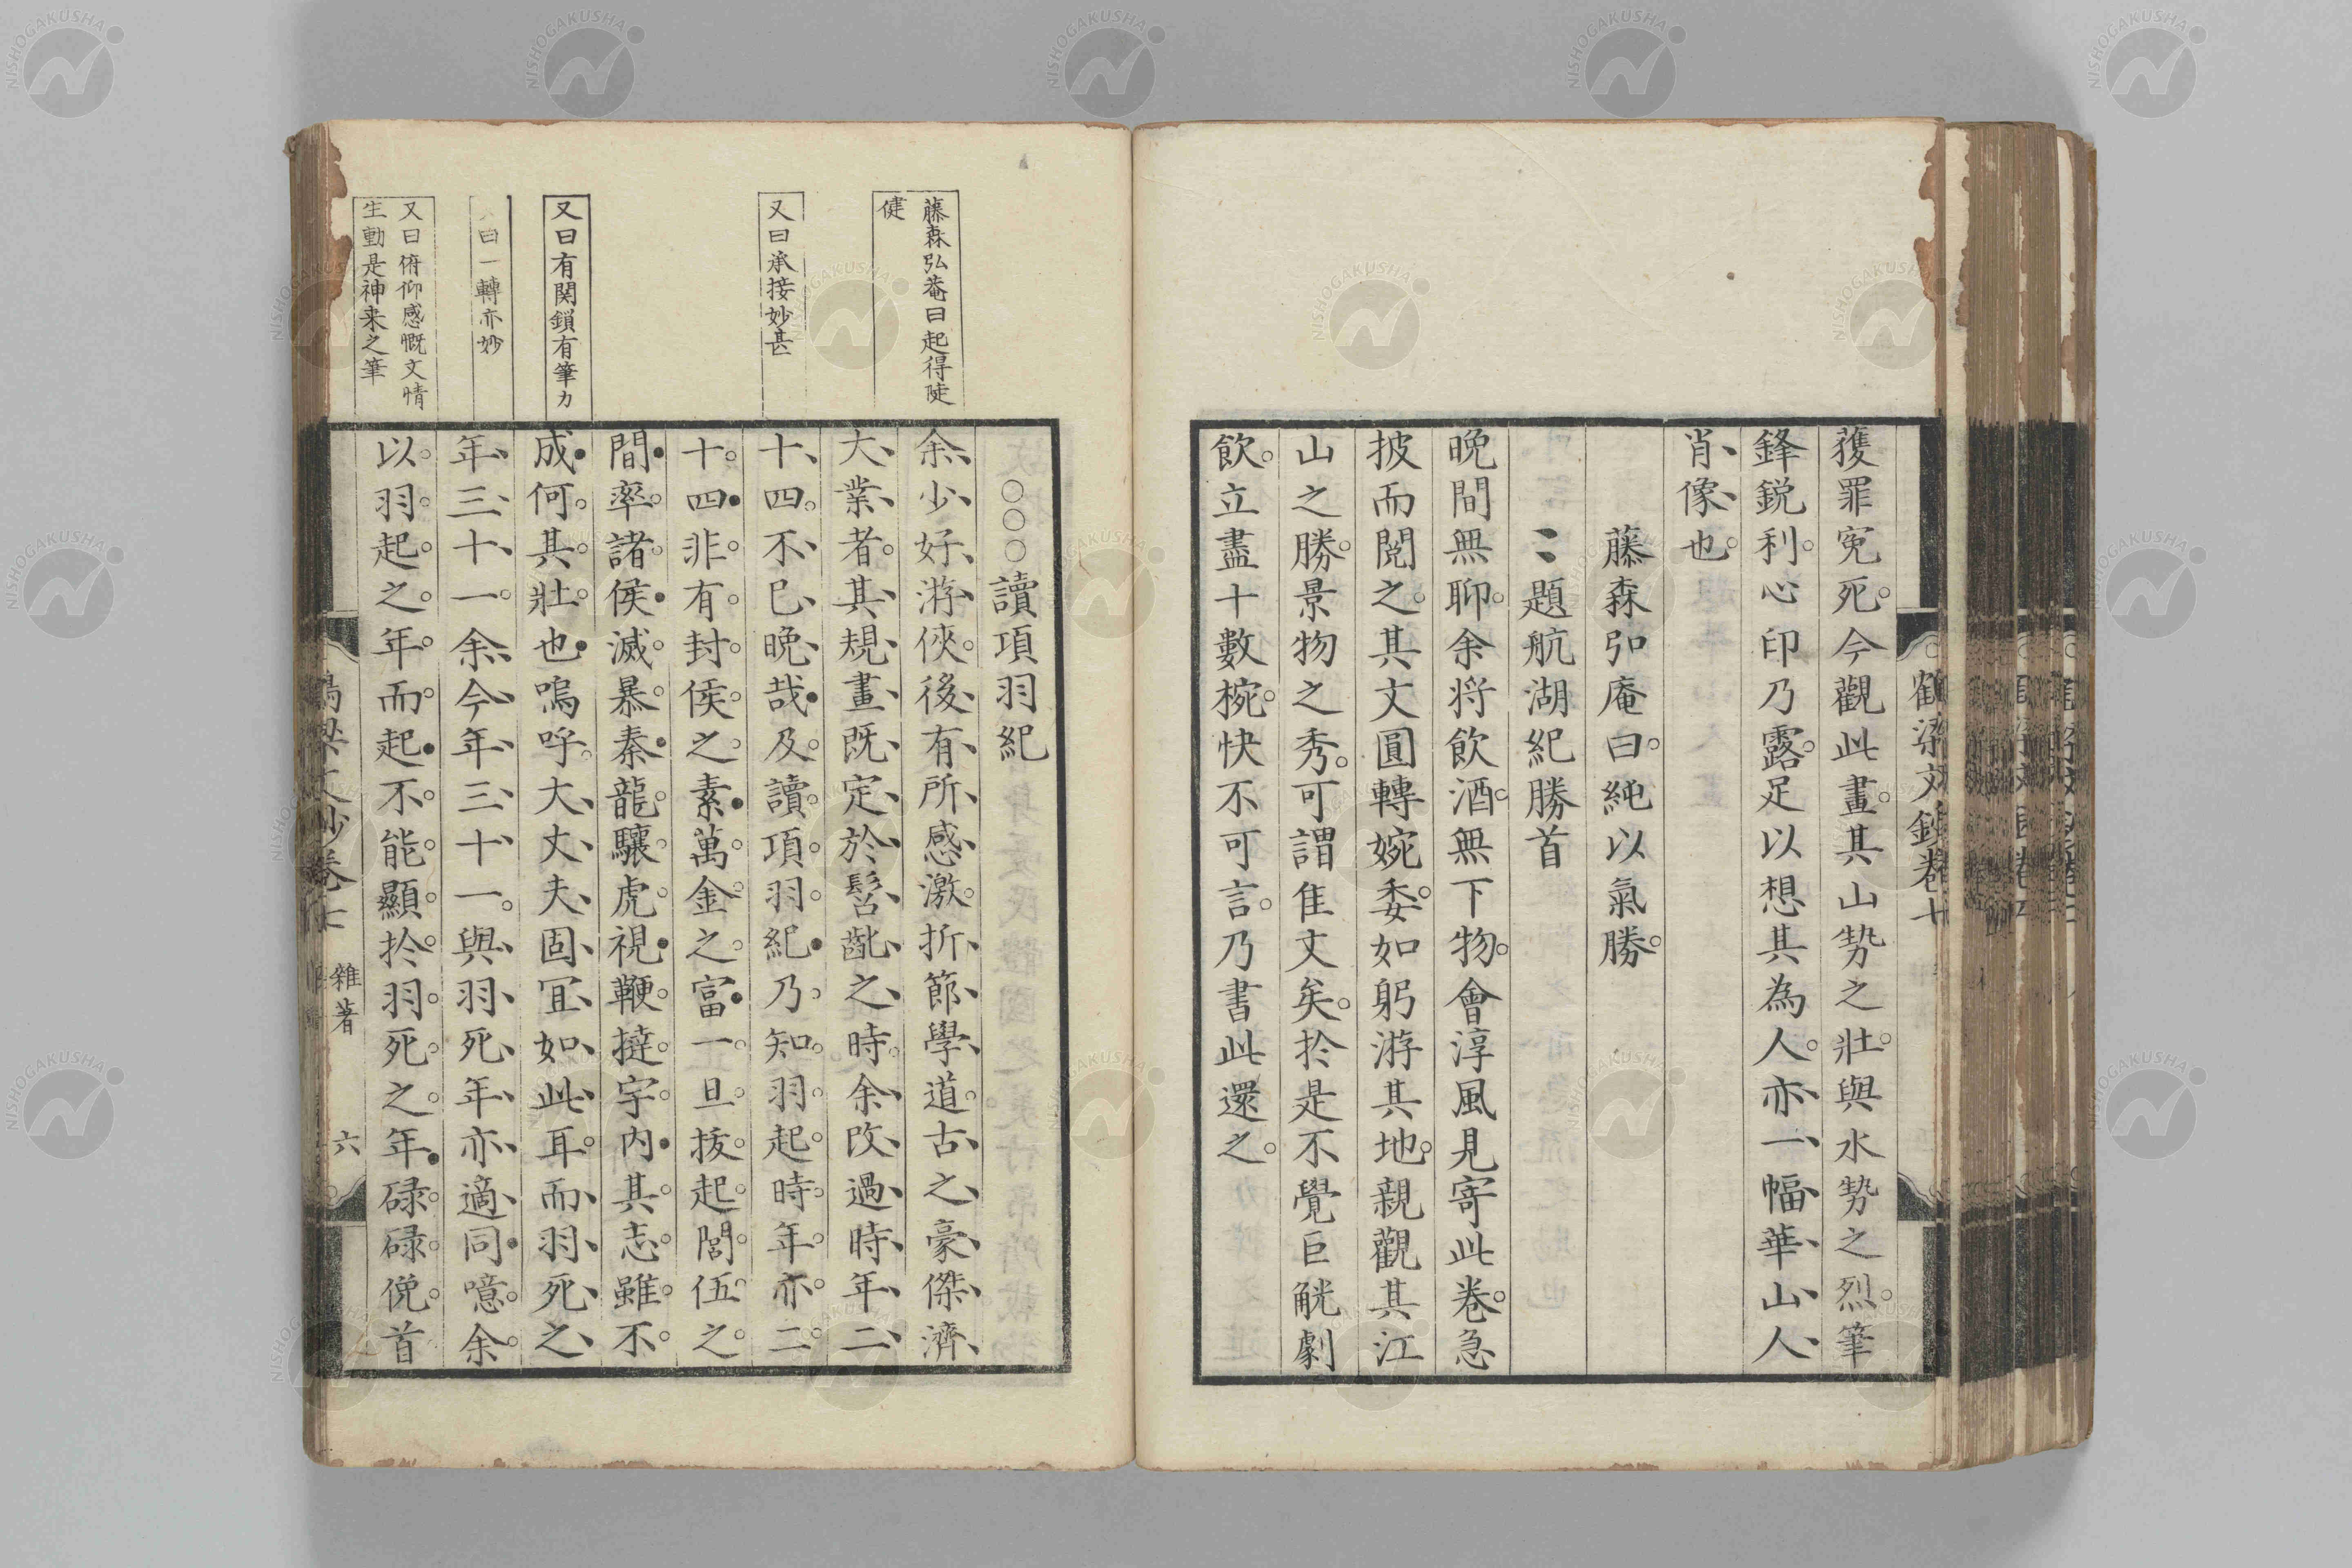 獲罪寃死今觀此畫其山勢之壯與水勢之烈筆
鋒鋭利心印乃露足以想其為人亦一幅華山人
肖像也
藤森弘庵曰純以氣勝
題航湖紀勝首
晩間無聊余將飲酒無下物會淳風見寄此卷急
披而閲之其文圓轉婉委如躬游其地親觀其江
山之勝景物之秀可謂隹文矣於是不覺巨觥劇
飲立盡十數椀快不可言乃書此還之
藤森弘菴曰起得陡
健
又曰承接妙甚
又曰有関鎖有筆力
曰一轉亦妙
又曰俯仰感慨文情
生動是神来之筆
○○○讀項羽紀
余少好游俠後有所感激折節學道古之豪傑濟
大業者其規畫既定於髫齔之時余改過時年二
十四不已晩哉及讀項羽紀乃知羽起時年亦二
十四非有封侯之素萬金之富一旦抜起閭伍之
間率諸侯滅暴秦龍驤虎視鞭撻宇内其志雖不
成何其壯也嗚呼大丈夫固冝如此耳而羽死之
年三十一余今年三十一與羽死年亦適同噫余
以羽起之年而起不能顯於羽死之年碌碌俛首
雜著
六